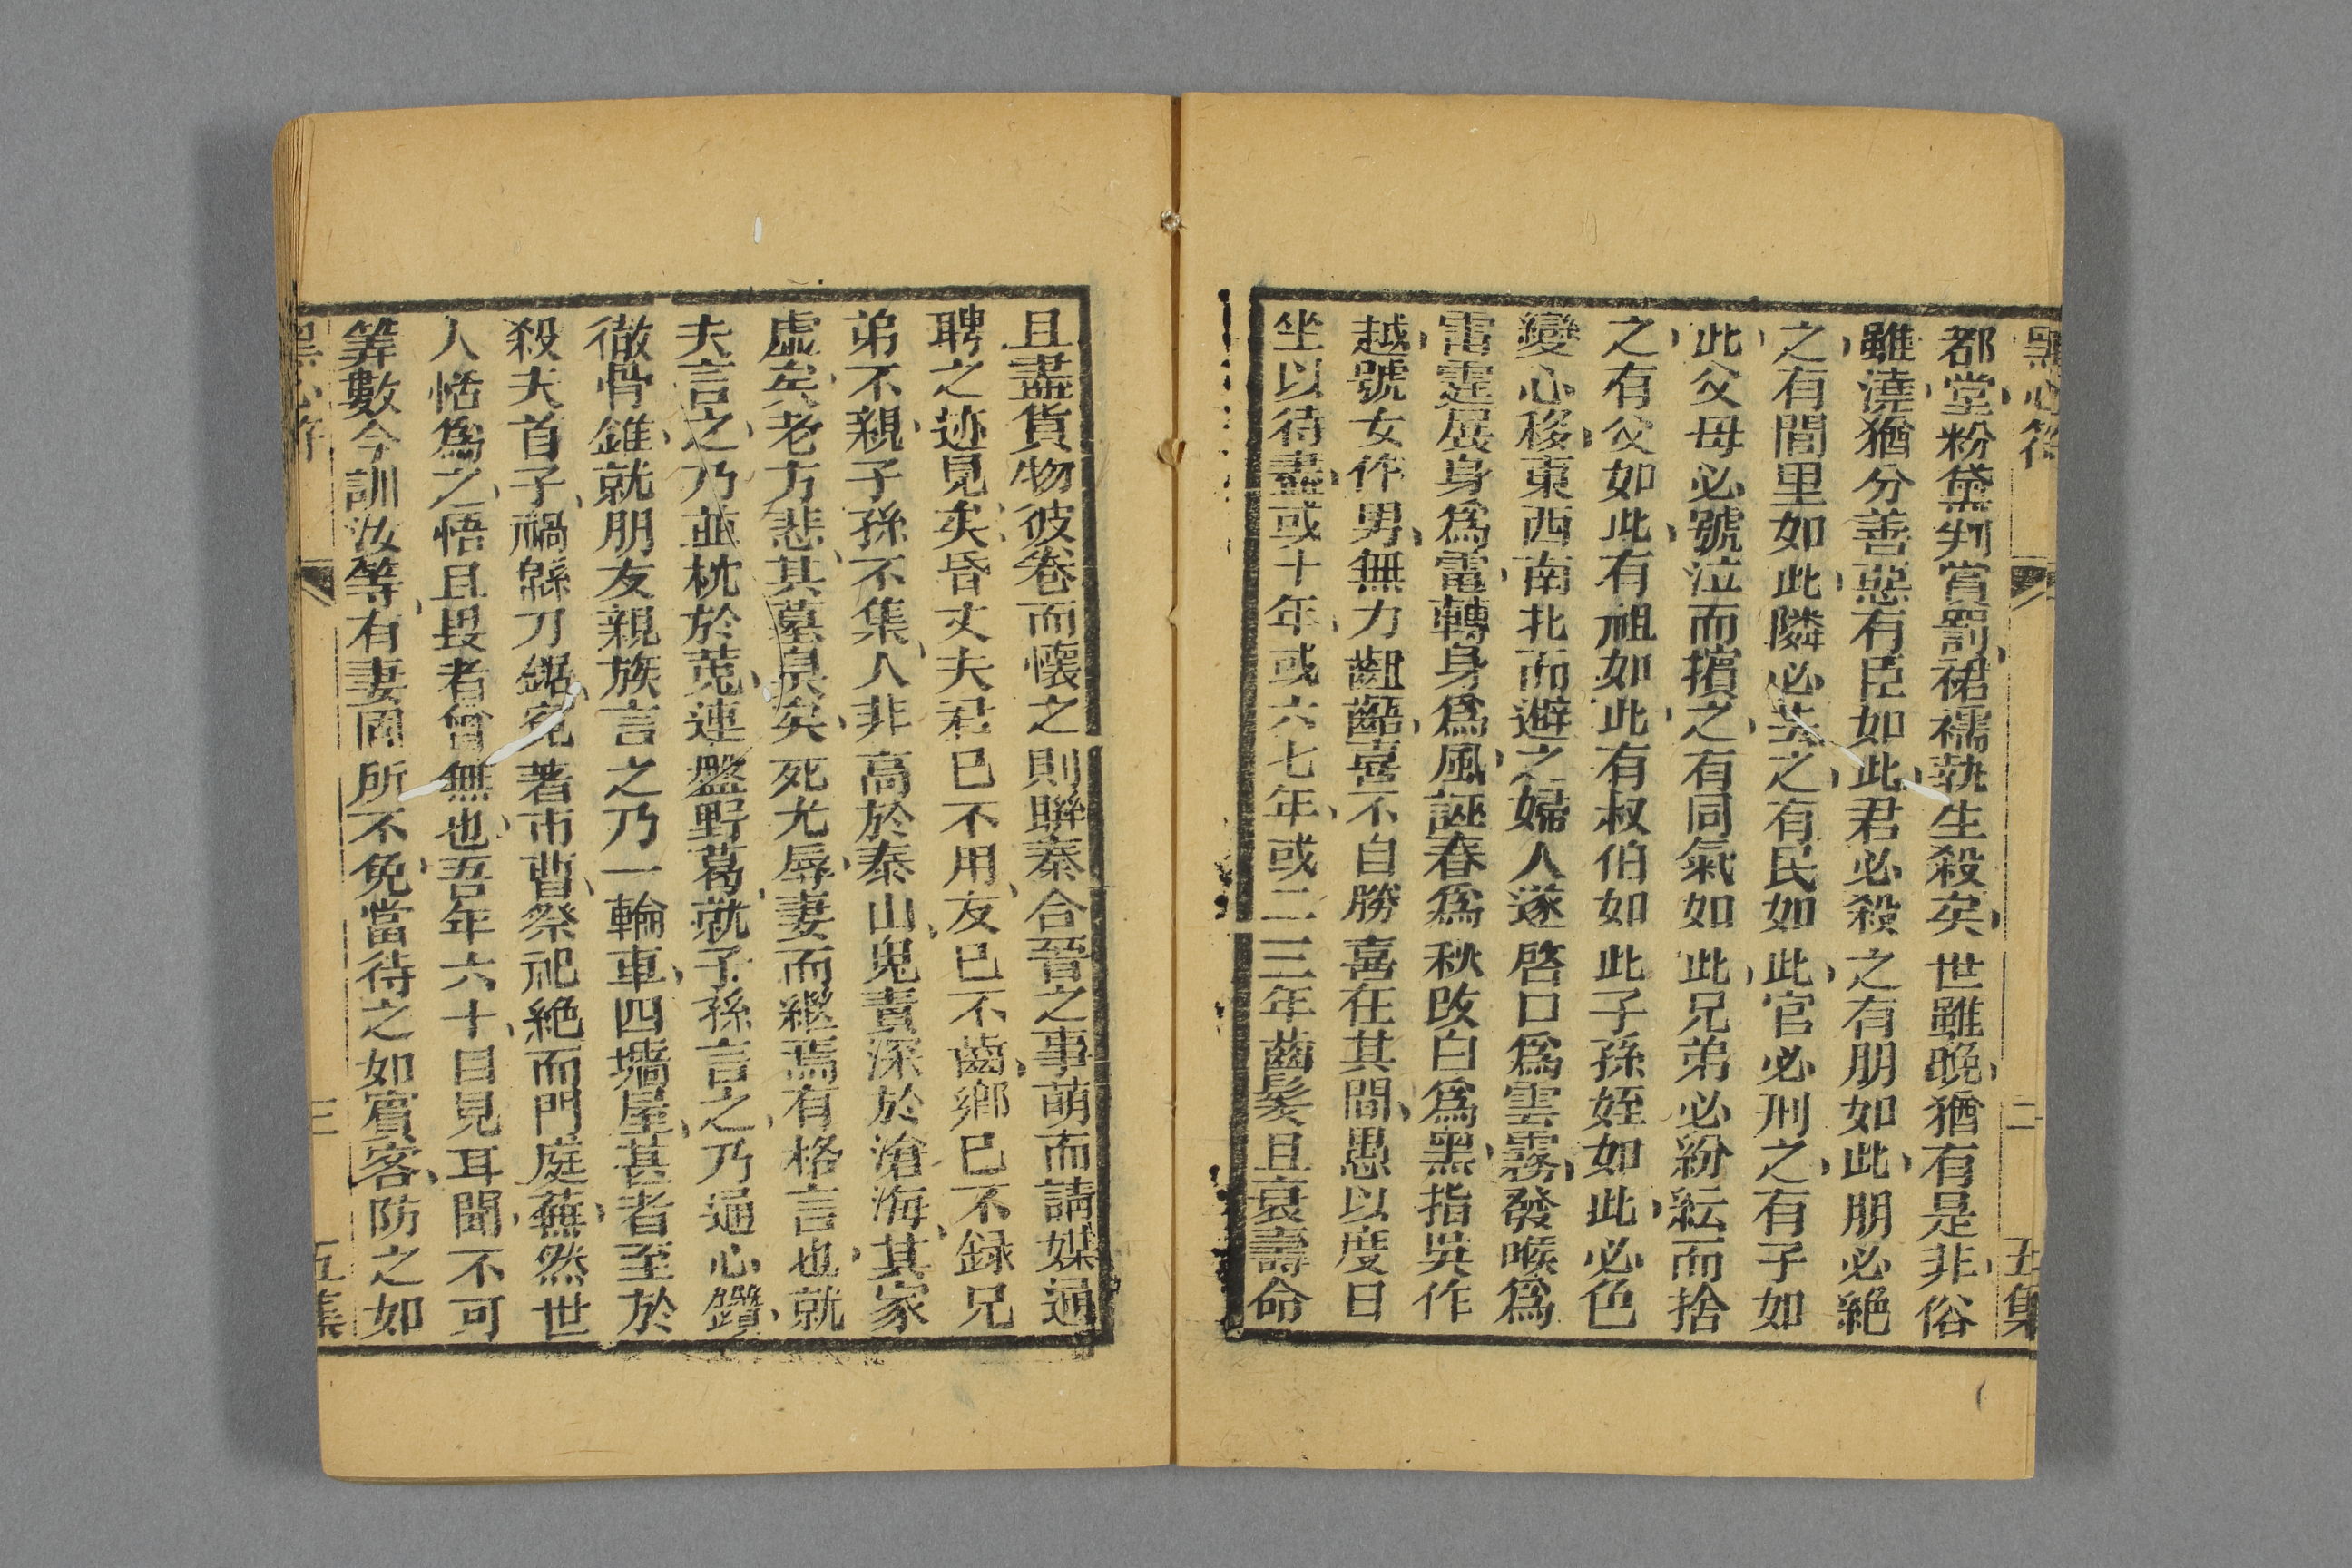 黑心符
二
五集
都堂粉黛判賞罰裙襦執生殺矣世雖晚猶有是非俗
雖澆猶分善惡有臣如此君必殺之有朋如此朋必絕
之有閭里如此隣必去之有民如此官必刑之有子如
此父母必號泣而擯之有同氣如此兄弟必紛紜而捨
之有父如此有祖如此有叔伯如此子孫姪如此必色
變心移東西南北而避之婦人遂啓口爲雲霧發喉爲
雷霆展身爲電轉身爲風誣春爲秋改白爲黑指吳作
越號女作男無力齟齬喜不自勝喜在其間愚以度日
坐以待盡或十年或六七年或二三年齒髪且衰壽命
且盡貨物彼卷而懷之則聯秦合晉之事萌而請媒通
聘之迹見矣昏丈夫君已不用友已不齒鄉已不録兄
弟不親子孫不集人非高於泰山鬼責深於滄海其家
虛矣老方悲其墓臭矣死尤辱妻而繼焉有格言也就
夫言之乃並枕於菟連盤野葛就子孫言之乃通心鑽
徹骨錐就朋友親族言之乃一輪車四墻屋甚者至於
殺夫首子禍緜刀鋸寃著市曹祭祀絕而門庭蕪然世
人恬爲之悟且畏者曾無也吾年六十目見耳聞不可
筭數今訓汝等有妻固所不免當待之如賓客防之如
黑心符
三
五集